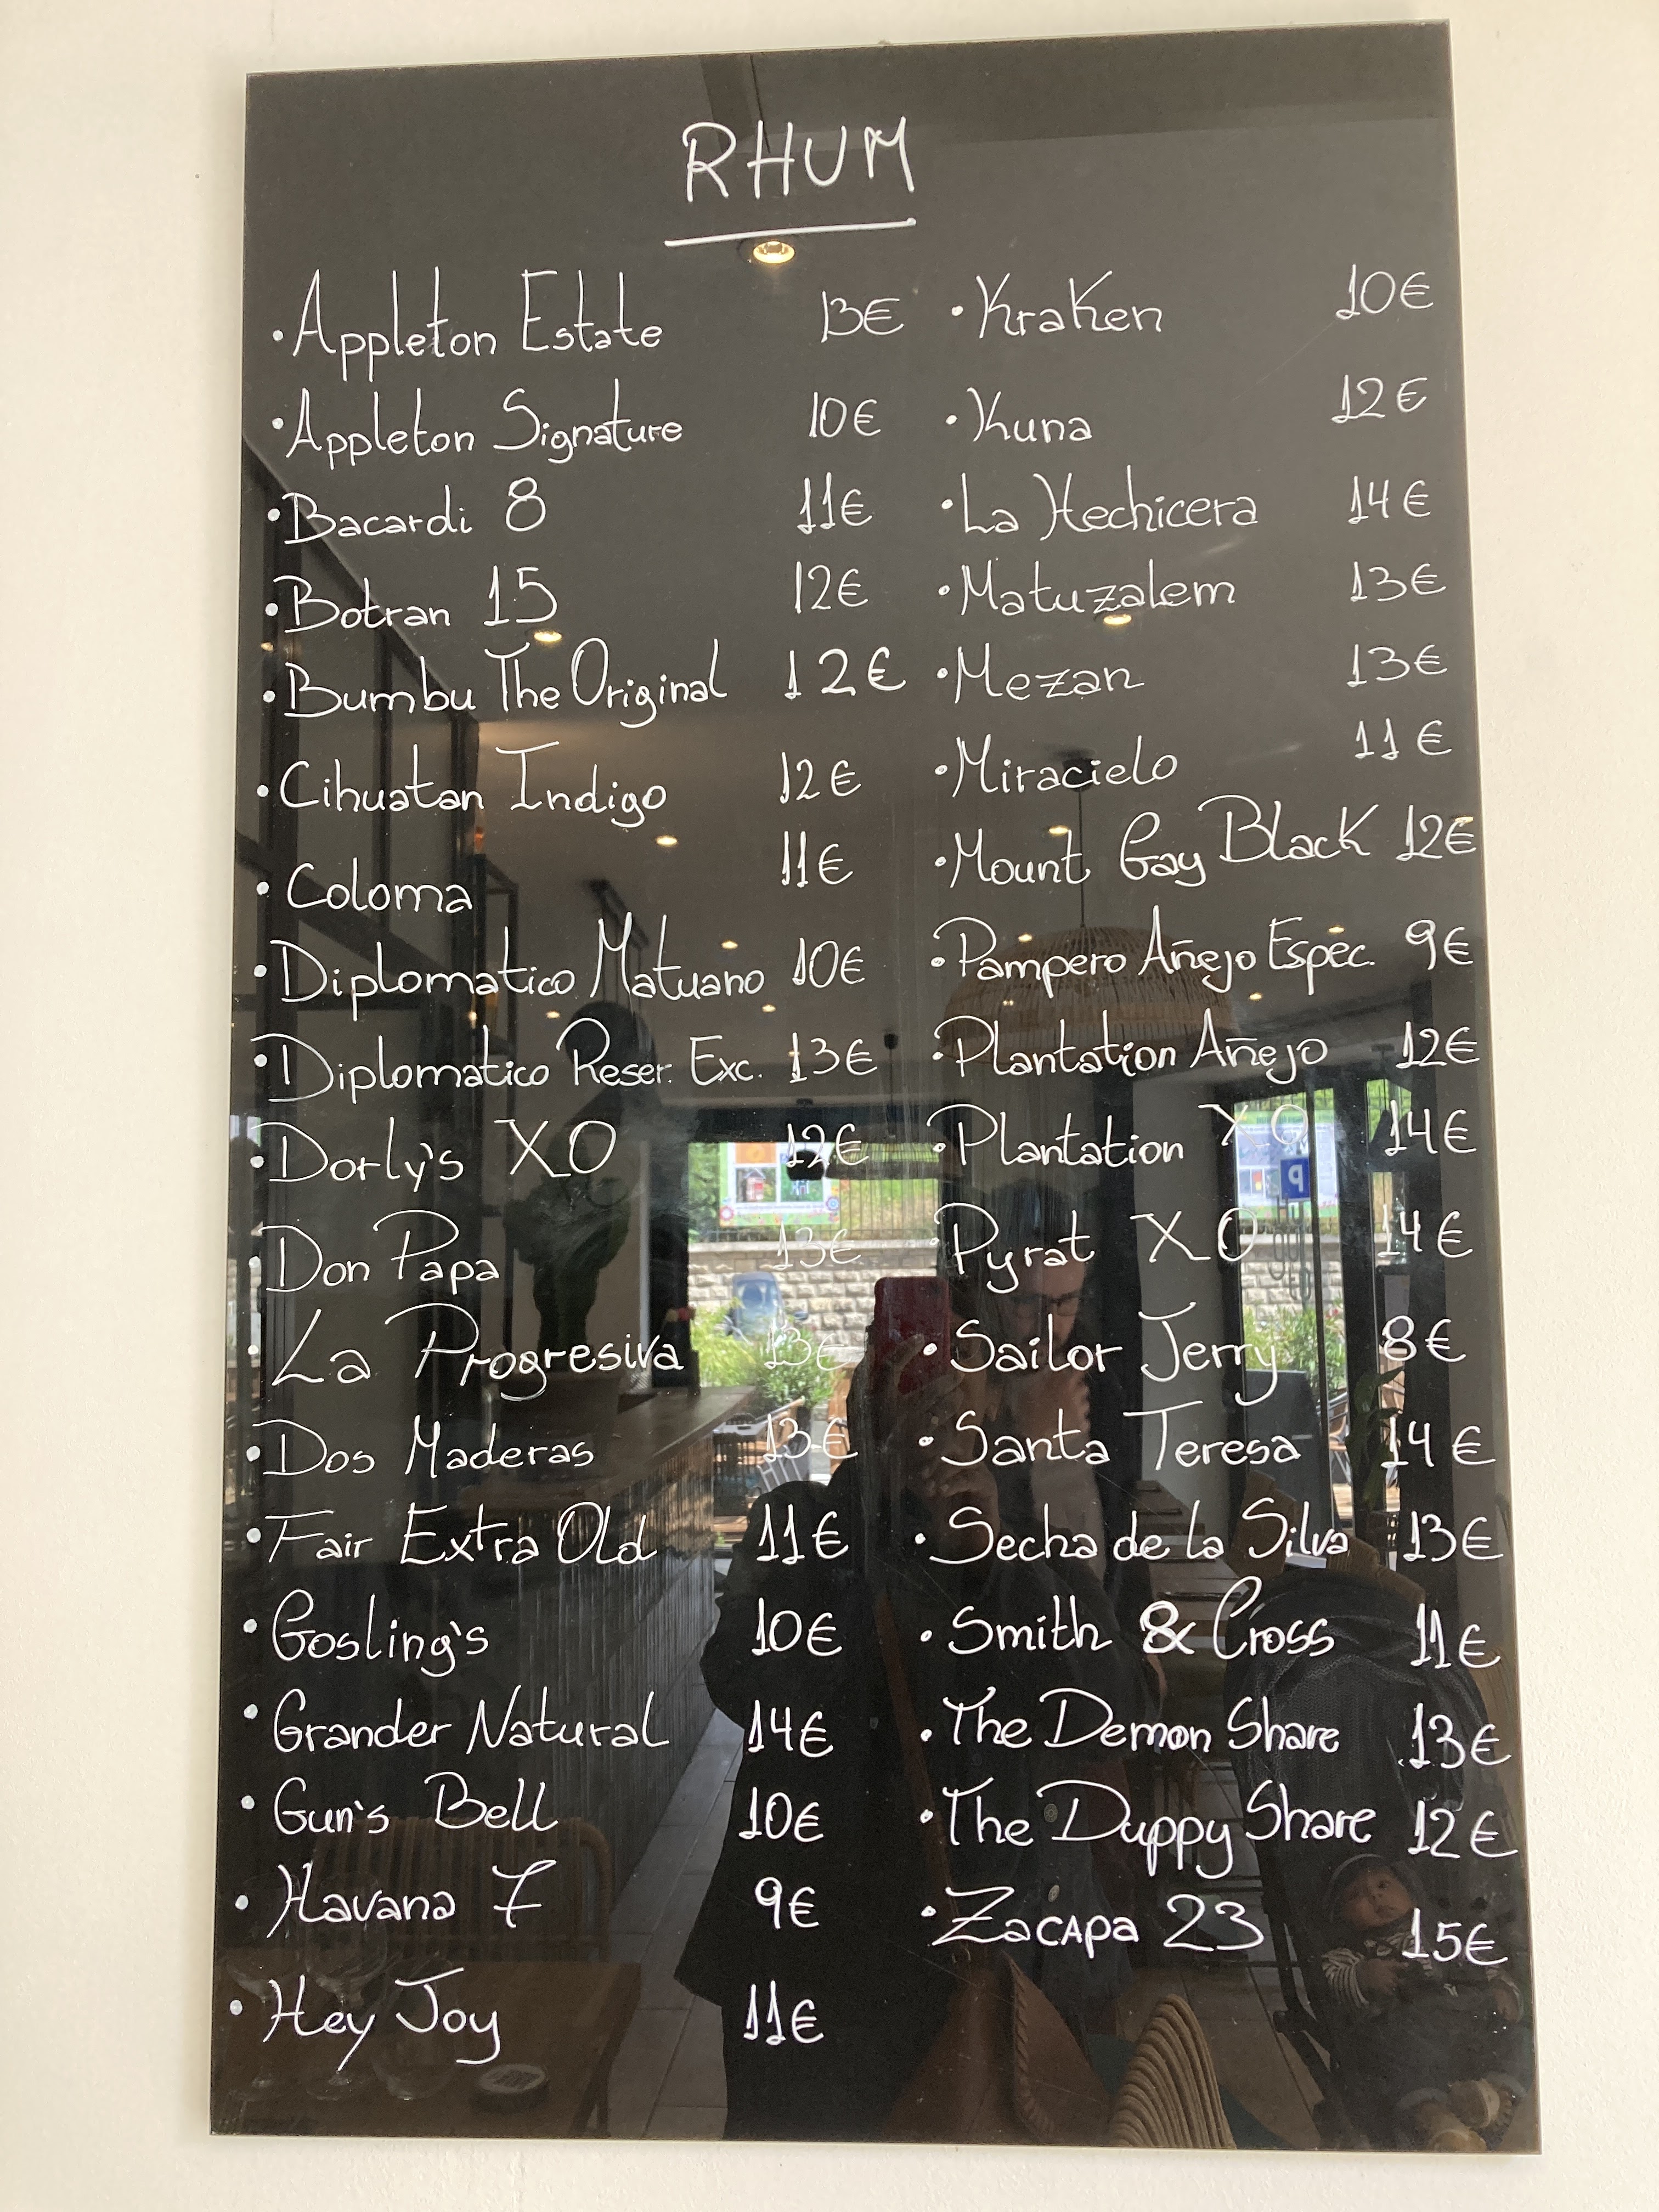 RHUM
· Appleton Estate 13€
· Appleton Signature 10€
· Bacardi 8 11€
· Botran 15 12€
· Bumbu The Original 12€
· Cihuatan Indigo 12€
· Coloma 11€
· Diplomatico Matuano 10€
· Diplomatico Reser. Exc. 13€
· Dorly's XO 12€
· Don Papa 13€
· La Progresiva 13€
· Dos Maderas 13€
· Fair Extra Old 11€
· Gosling's 10€
· Grander Natural 14€
· Gun's Bell 10€
· Havana 7 9€
· Hey Joy 11€
· Kraken 10€
· Kuna 12€
· La Hechicera 14€
· Matuzalem 13€
· Mezan 13€
· Miracielo 11€
· Mount Gay Black 12€
· Pampero Añejo Espec. 9€
· Plantation Añejo 12€
· Plantation XO 14€
· Pyrat XO 14€
· Sailor Jerry 8€
· Santa Teresa 14€
· Secha de la Silva 13€
· Smith & Cross 11€
· The Demon Share 13€
· The Duppy Share 12€
· Zacapa 23 15€